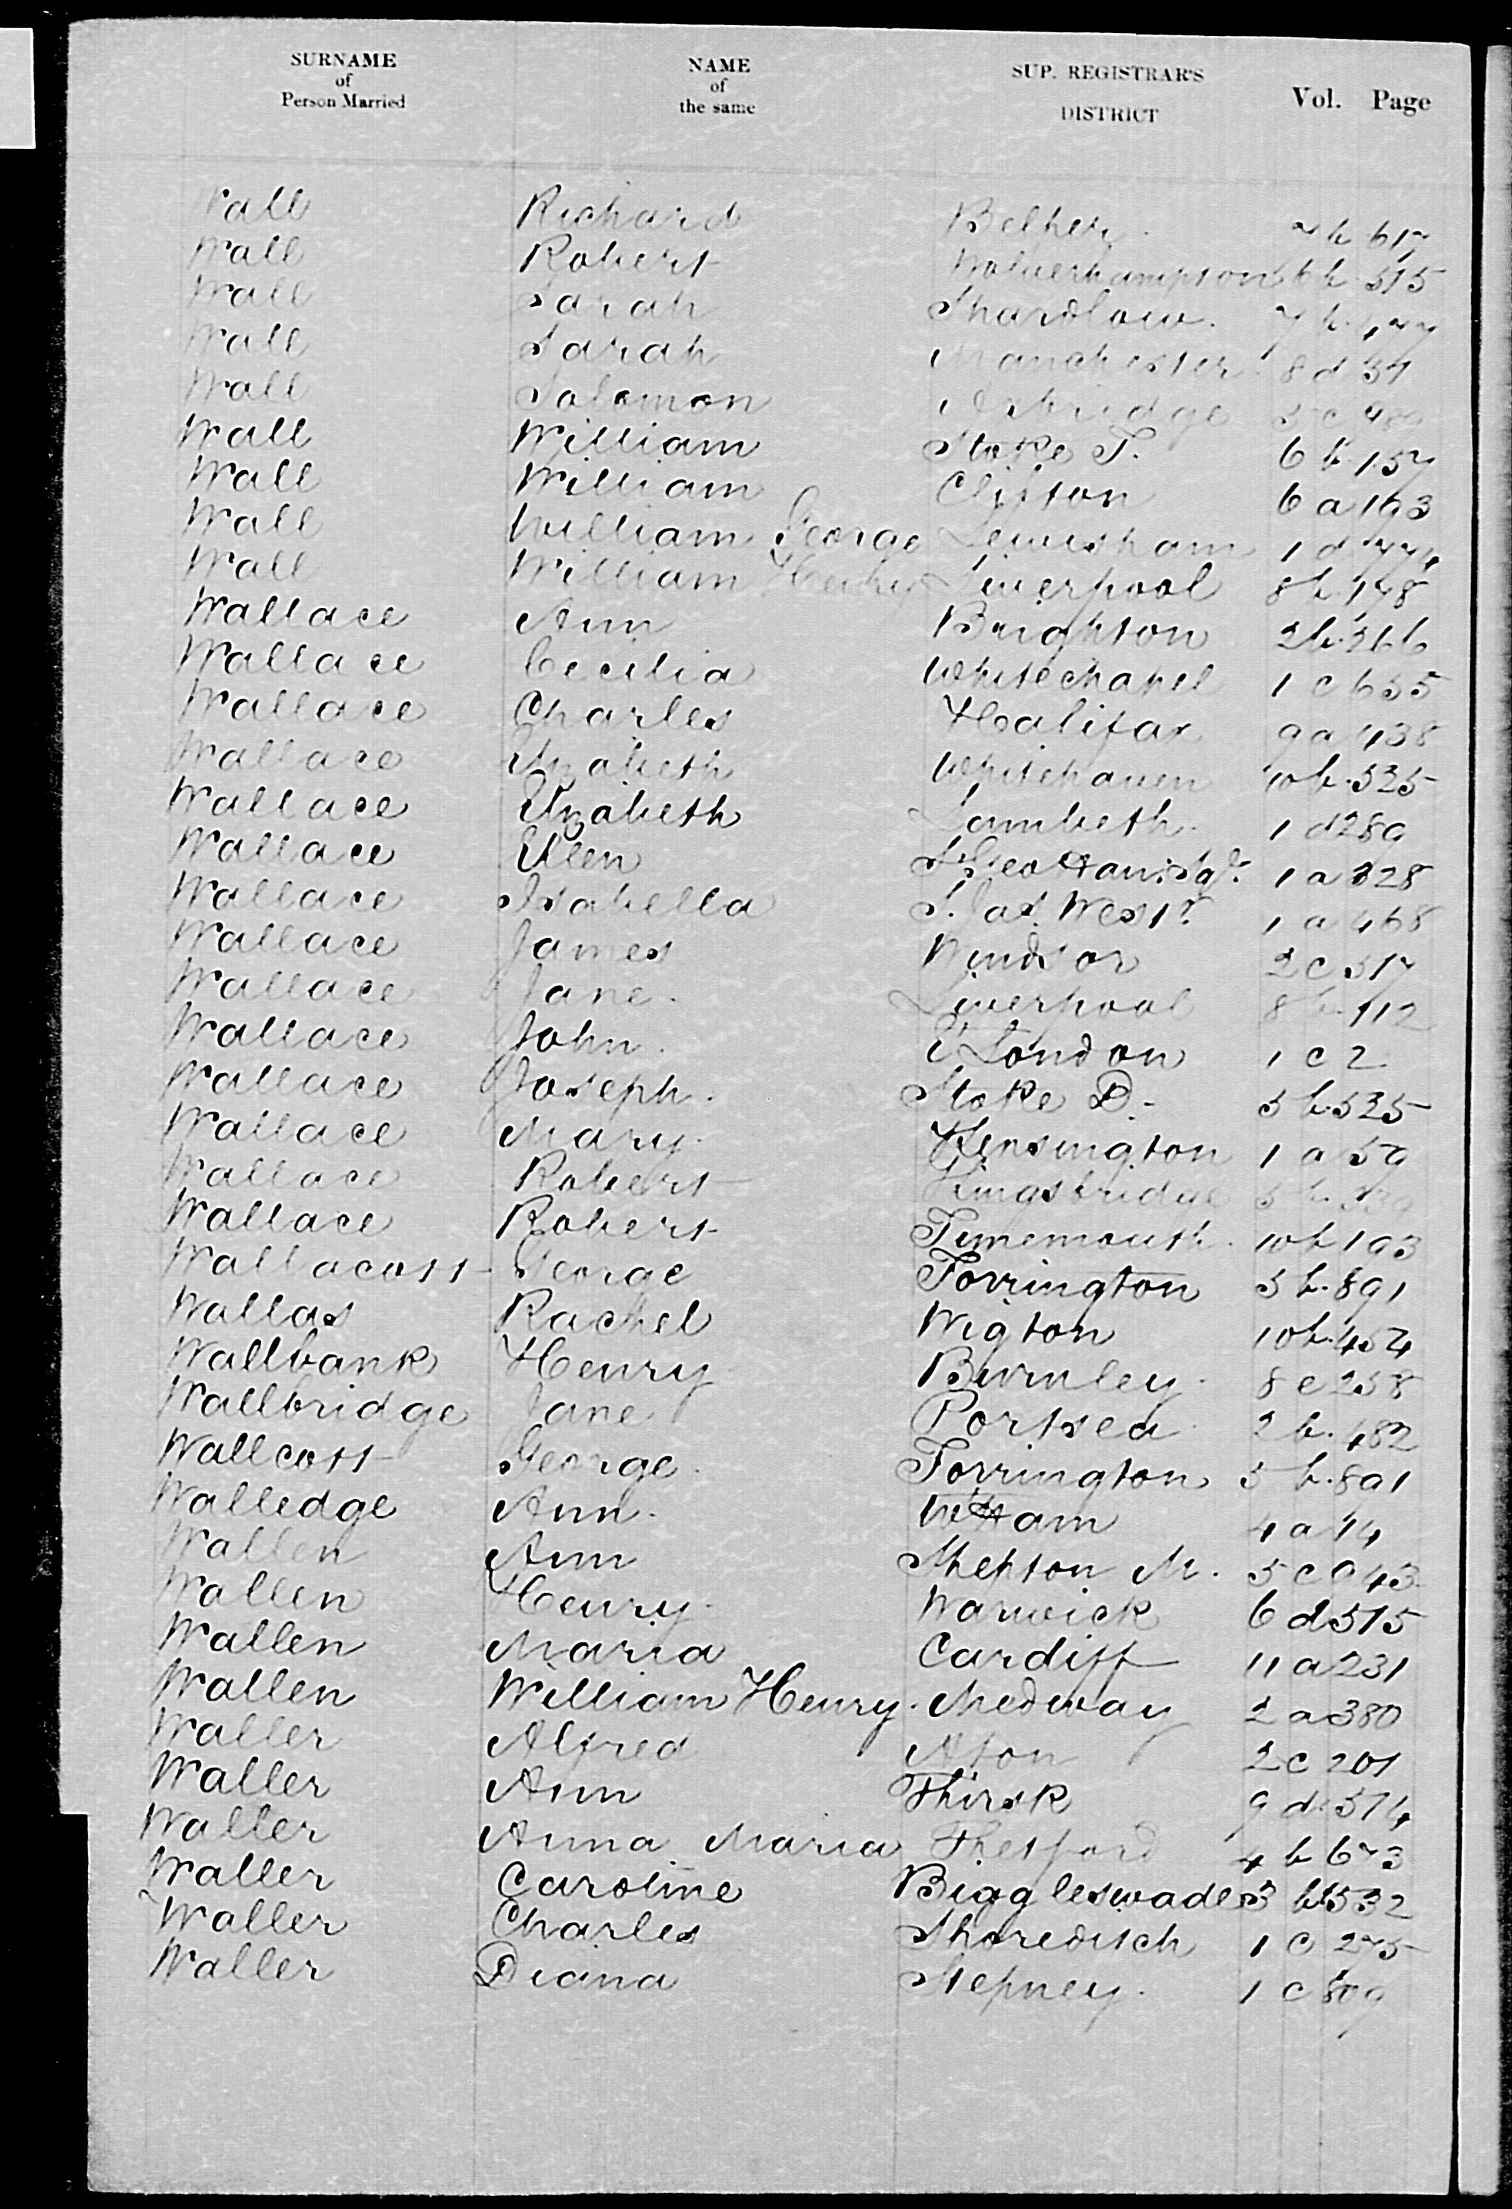 SURNAME of Person Married NAME of the same SUP. REGISTRAR'S DISTRICT Vol. Page
Wall Richard Belper 7b 617
Wall Robert Wolverhampton 6b 515
Wall Sarah Shardlow 7b 477
Wall Sarah Manchester 8d 37
Wall Solomon Uxbridge
Wall William Stoke T. 6b 157
Wall William Clifton 6a 193
Wall William George Lewisham 1d 774
Wall William Henry Liverpool 8b 148
Wallace Ann Brighton 2b 366
Wallace Cecilia Whitechapel 1c 655
Wallace Charles Halifax 9a 438
Wallace Elizabeth Whitehaven 10b 525
Wallace Elizabeth Lambeth 1d 289
Wallace Ellen St Geo Han: Sqr. 1a 328
Wallace Isabella S. Jas. Westr. 1a 468
Wallace James Windsor 2c 517
Wallace Jane Liverpool 8b 112
Wallace John E London 1c 2
Wallace Joseph Stoke D. 5b 525
Wallace Mary Kensington 1a 59
Wallace Robert Kingsbridge
Wallace Robert Tynemouth 10b 193
Wallacott George Torrington 5b 891
Wallas Rachel Wigton 10b 454
Wallbank Henry Burnley 8e 258
Wallbridge Jane Portsea 2b 482
Wallcott George Torrington 5b 891
Walledge Ann W Ham 4a 14
Wallen Ann Shepton M. 5c 943
Wallen Henry Warwick 6d 515
Wallen Maria Cardiff 11a 231
Wallen William Henry Medway 2a 380
Waller Alfred Eton 2c 201
Waller Ann Thirsk 9d 574
Waller Anna Maria Thetford 4b 673
Waller Caroline Biggleswade 3b 532
Waller Charles Shoreditch 1c 275
Waller Diana Stepney 1c 809